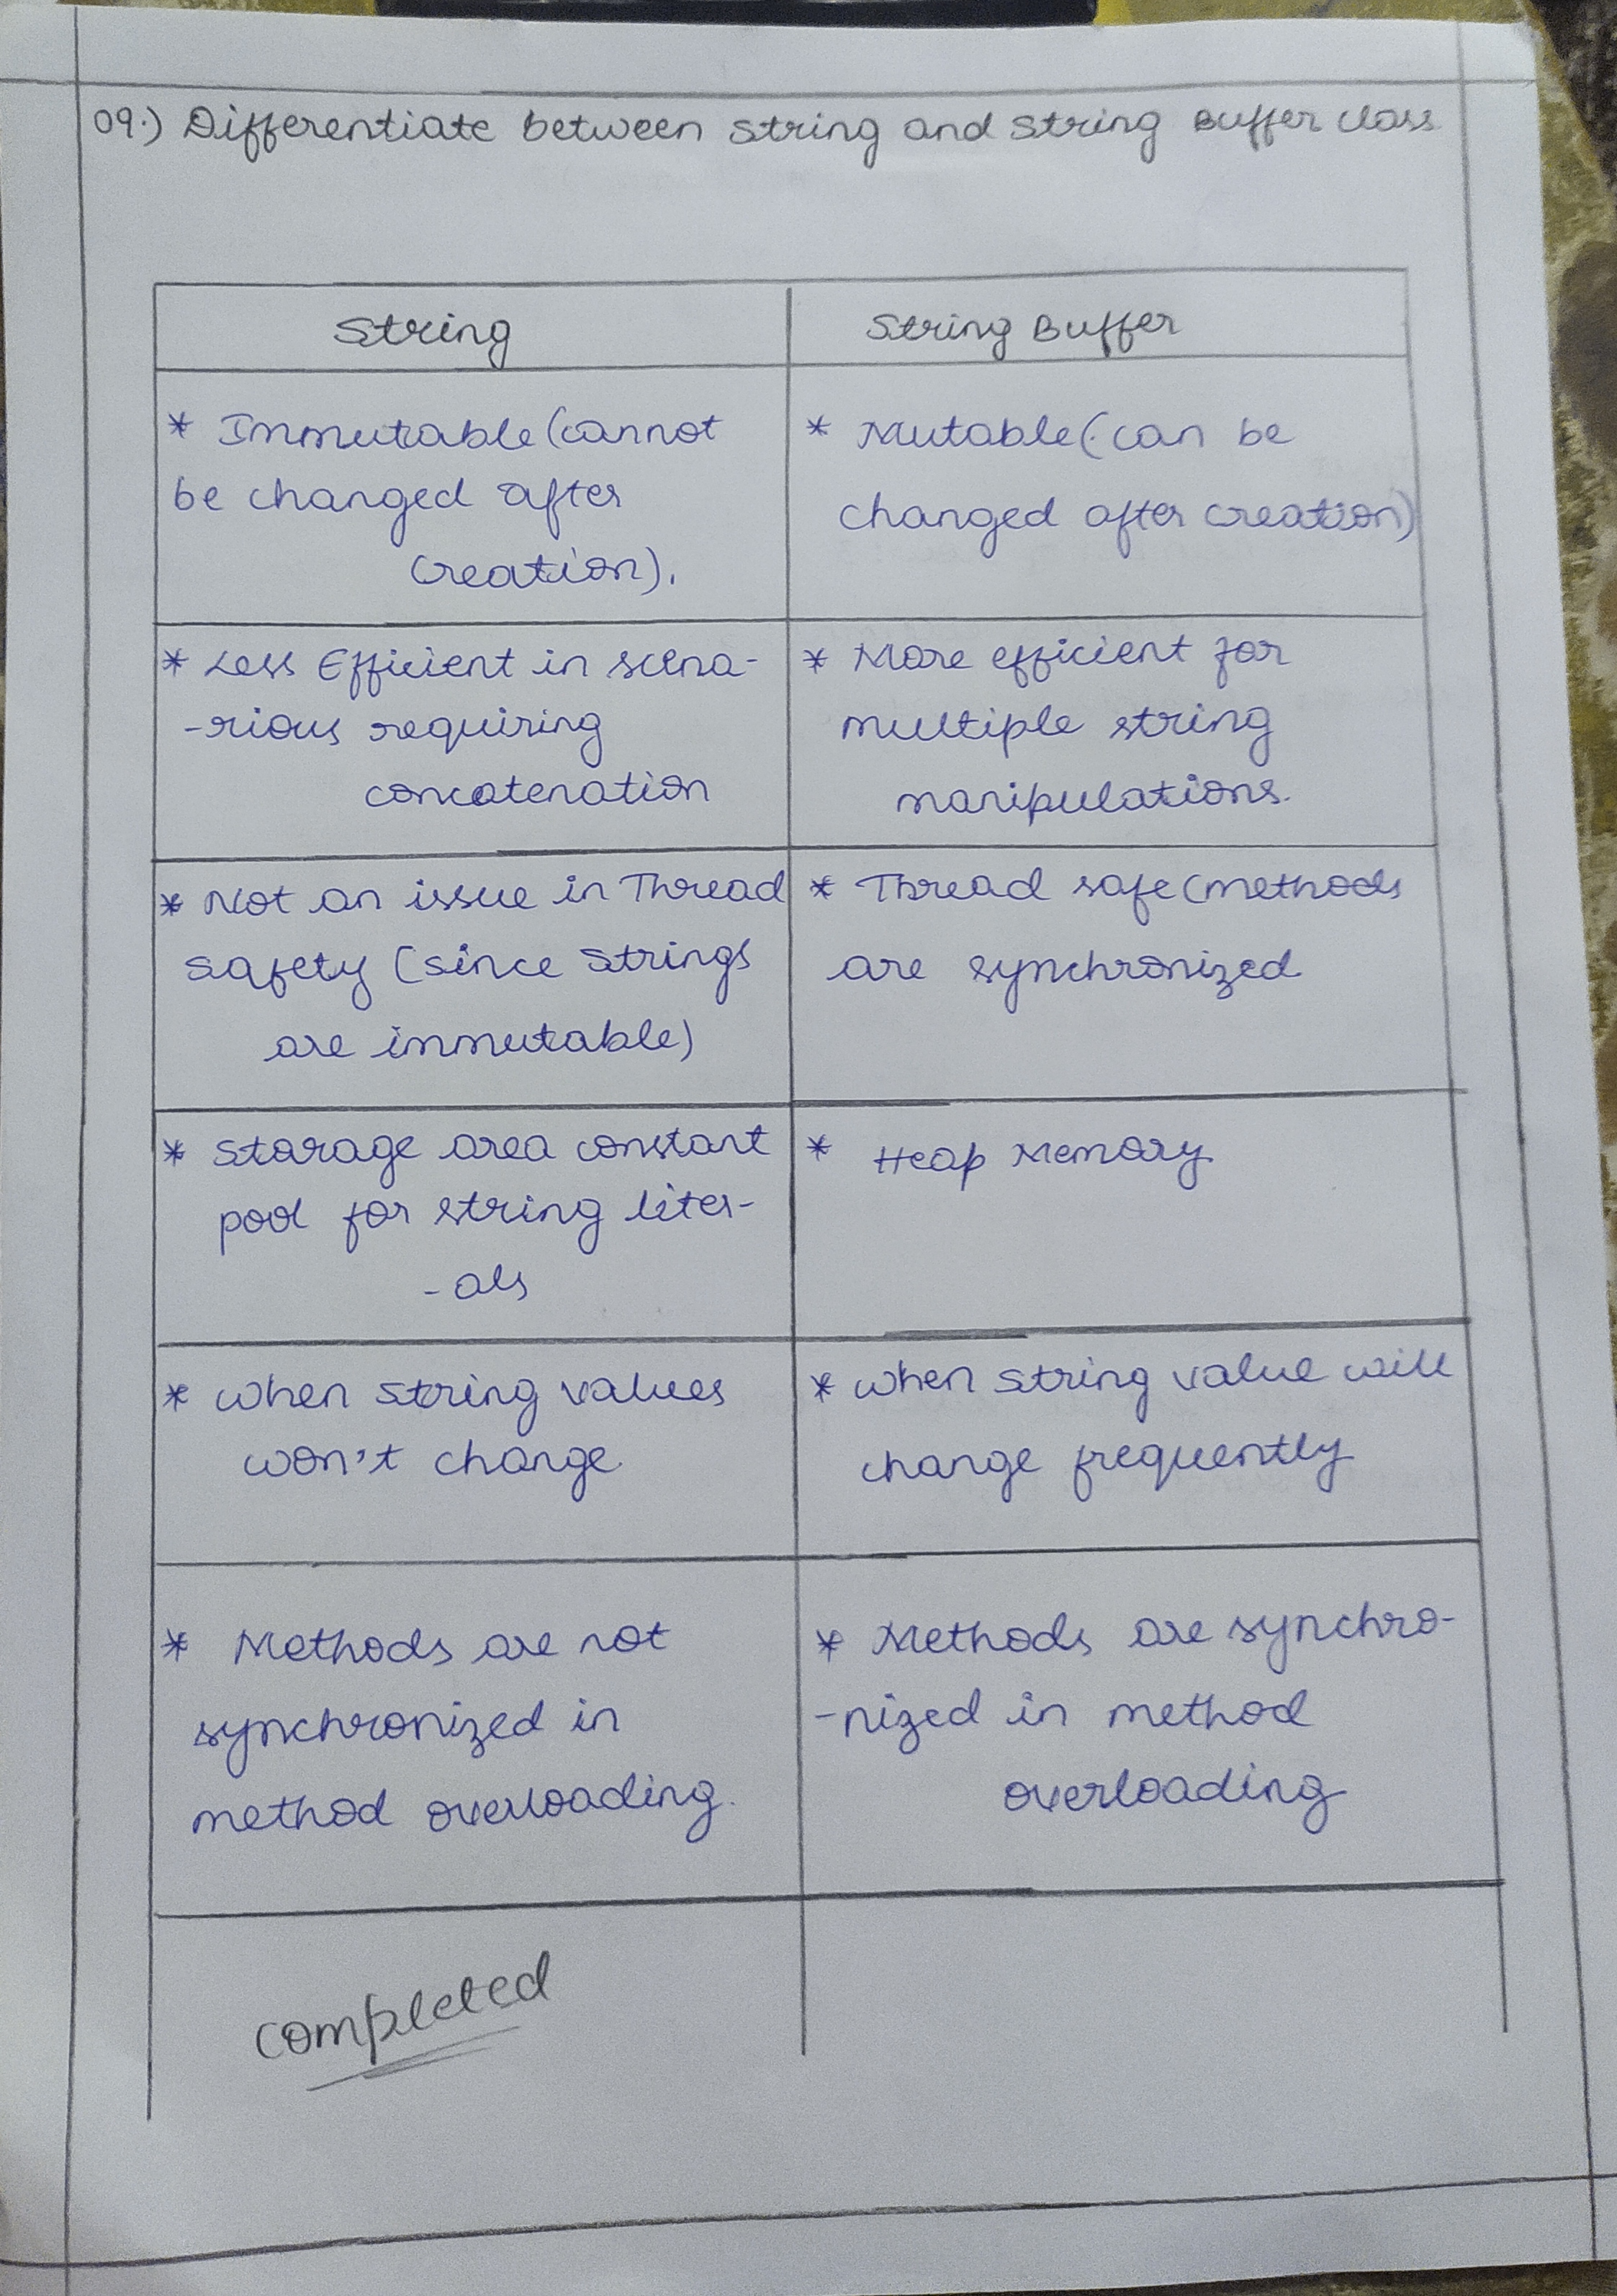 09.) Differentiate between String and String Buffer class
String
String Buffer
* Immutable (cannot
be changed after
creation).
* Mutable (can be
changed after creation)
* Less Efficient in scena-
-rious requiring
concatenation
* More efficient for
multiple string
manipulations.
* Not an issue in Thread
safety (since Strings
are immutable)
* Thread safe (methods
are synchronized
* Storage area constant
pool for string liter-
-als
* Heap Memory
* when string values
won't change
* when string value will
change frequently
* Methods are not
synchronized in
method overloading.
* Methods are synchro-
-nized in method
overloading
completed